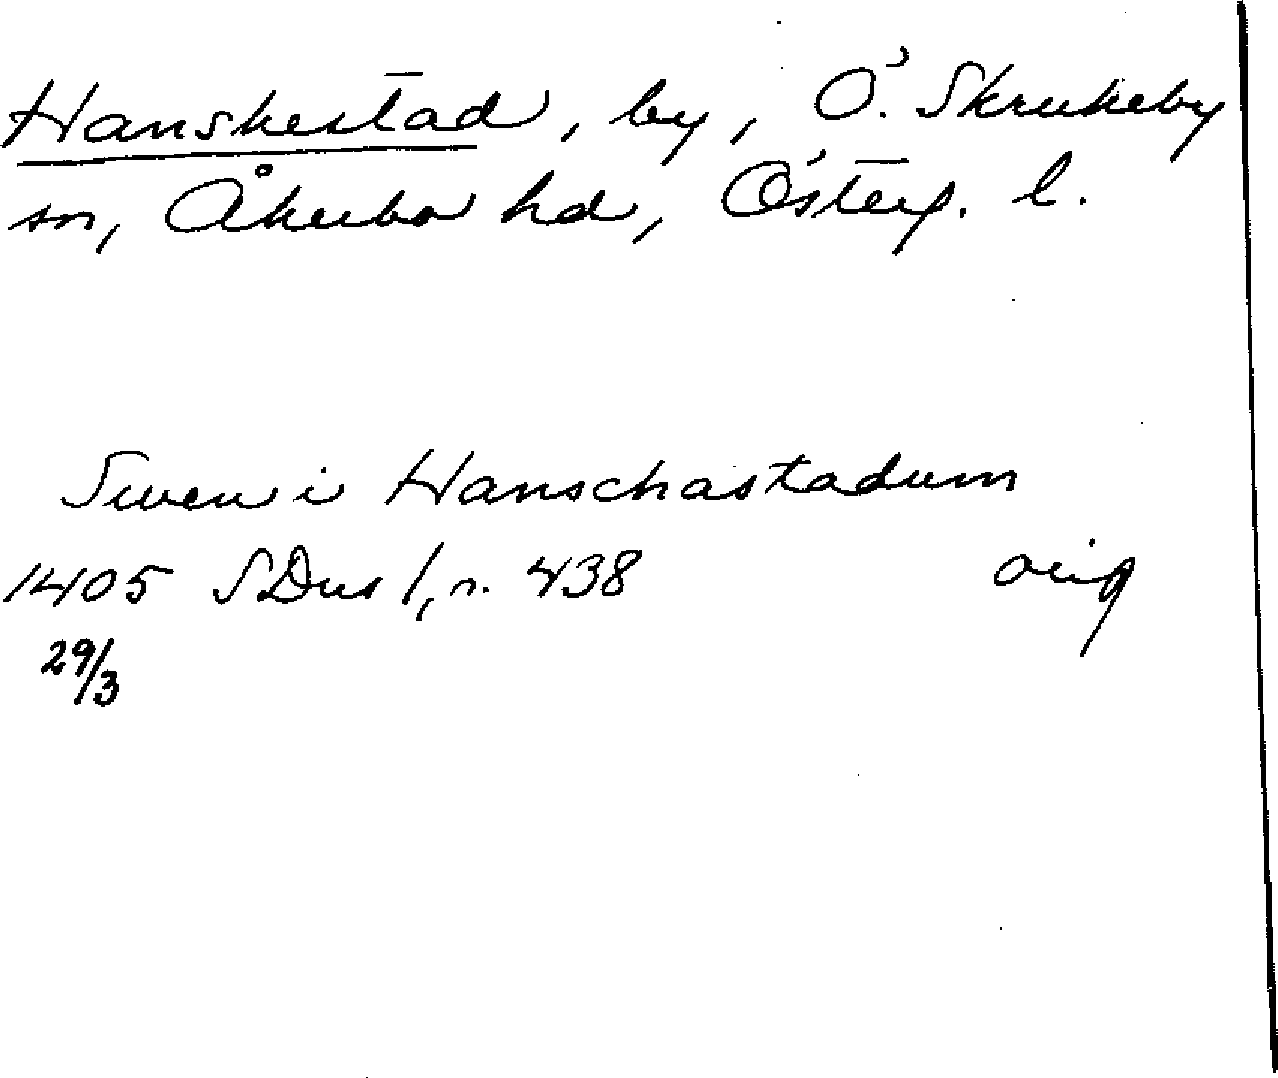 Hanskestad, by, Ö. Skrukeby
sn, Åkerbo hd, Österg. l.
Swen i Hanschastadum
1405 SDns 1, n. 438 orig
29/3